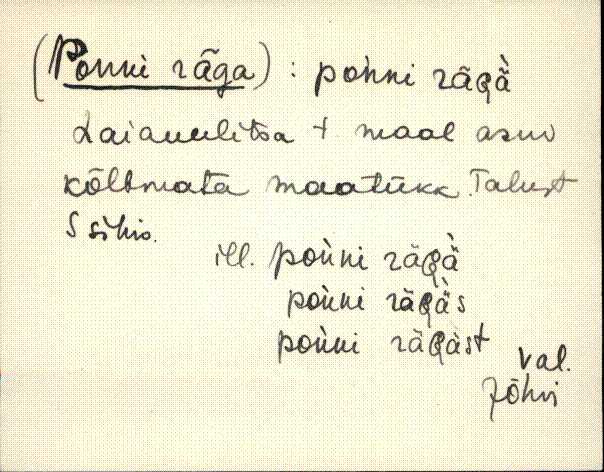 (Ponni räga) : poǹni rägä̀
Laiauulitsa t. maal asuv
kõlbmata maatükk. Talust
S sihis.
ill. poǹni rägä̀
poǹni rägä̀s
poǹni rägàst
val.
Jõhvi